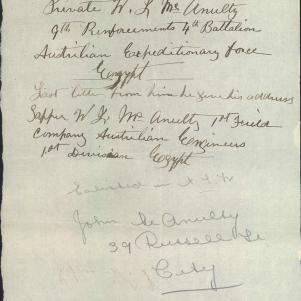 Private W. L. Mc Anulty
9th Reinforcements 4th Battalion
Australian Expeditionary Force
Egypt
Last letter from him he gave his address
Sapper W L. Mc Anulty 1st Field
Company Australian Engineers
1st Division Egypt
Enlisted in
John McAnulty
39 Russell St
City